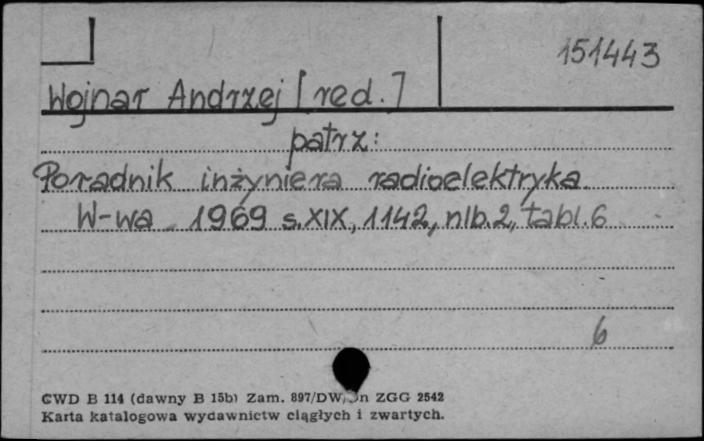 151443
Wojnar Andrzej [red.]
patrz:
Poradnik inżyniera radioelektryka.
W-wa 1969 s. XIX, 1142, nlb. 2, tabl. 6
6
CWD B 114 (dawny B 15b) Zam. 897/DW/ ZGG 2542
Karta katalogowa wydawnictw ciągłych i zwartych.